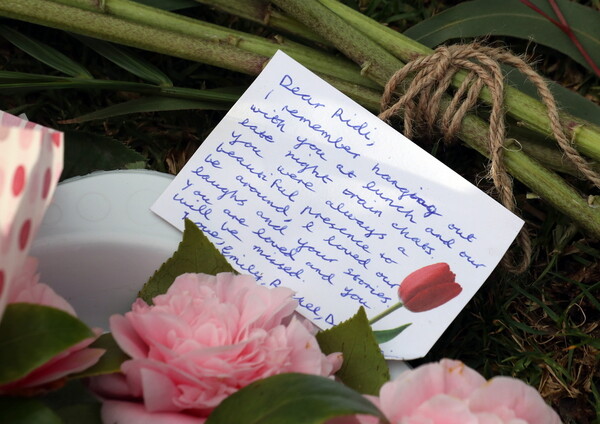 Dear Ridi,
I remember hanging out
with you at lunch and our
late night train chats.
You were always a
beautiful presence to
be around. I loved our
laughs and your stories.
You are loved and you
will be missed
Love, Emily